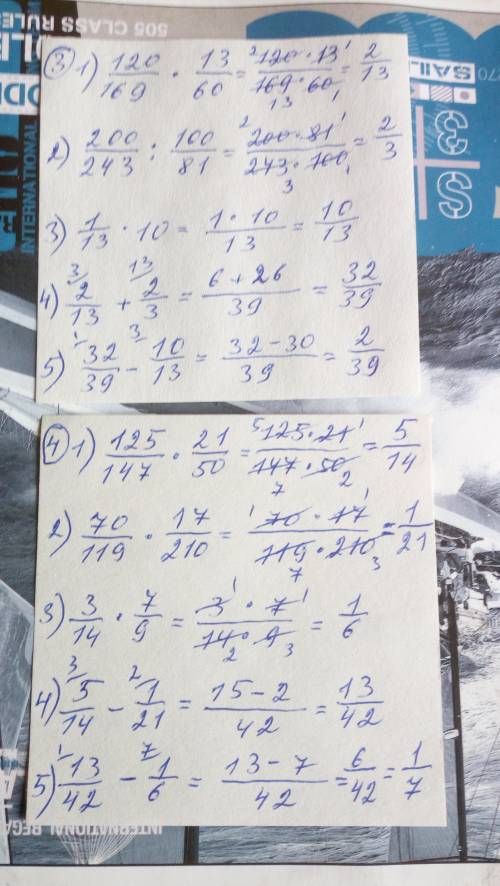 505 CLASS RULES
③ 1) 120/169 · 13/60 = 120·13/169·60 = 2/13
2) 200/243 : 100/81 = 200·81/243·100 = 2/3
3) 1/13 · 10 = 1·10/13 = 10/13
4) 2/13 + 2/3 = 6+26/39 = 32/39
5) 32/39 − 10/13 = 32−30/39 = 2/39
④ 1) 125/147 · 21/50 = 125·21/147·50 = 5/14
2) 70/119 · 17/210 = 70·17/119·210 = 1/21
3) 3/14 · 7/9 = 3·7/14·9 = 1/6
4) 5/14 − 1/21 = 15−2/42 = 13/42
5) 13/42 − 1/6 = 13−7/42 = 6/42 = 1/7
INTERNATIONAL
SAIL